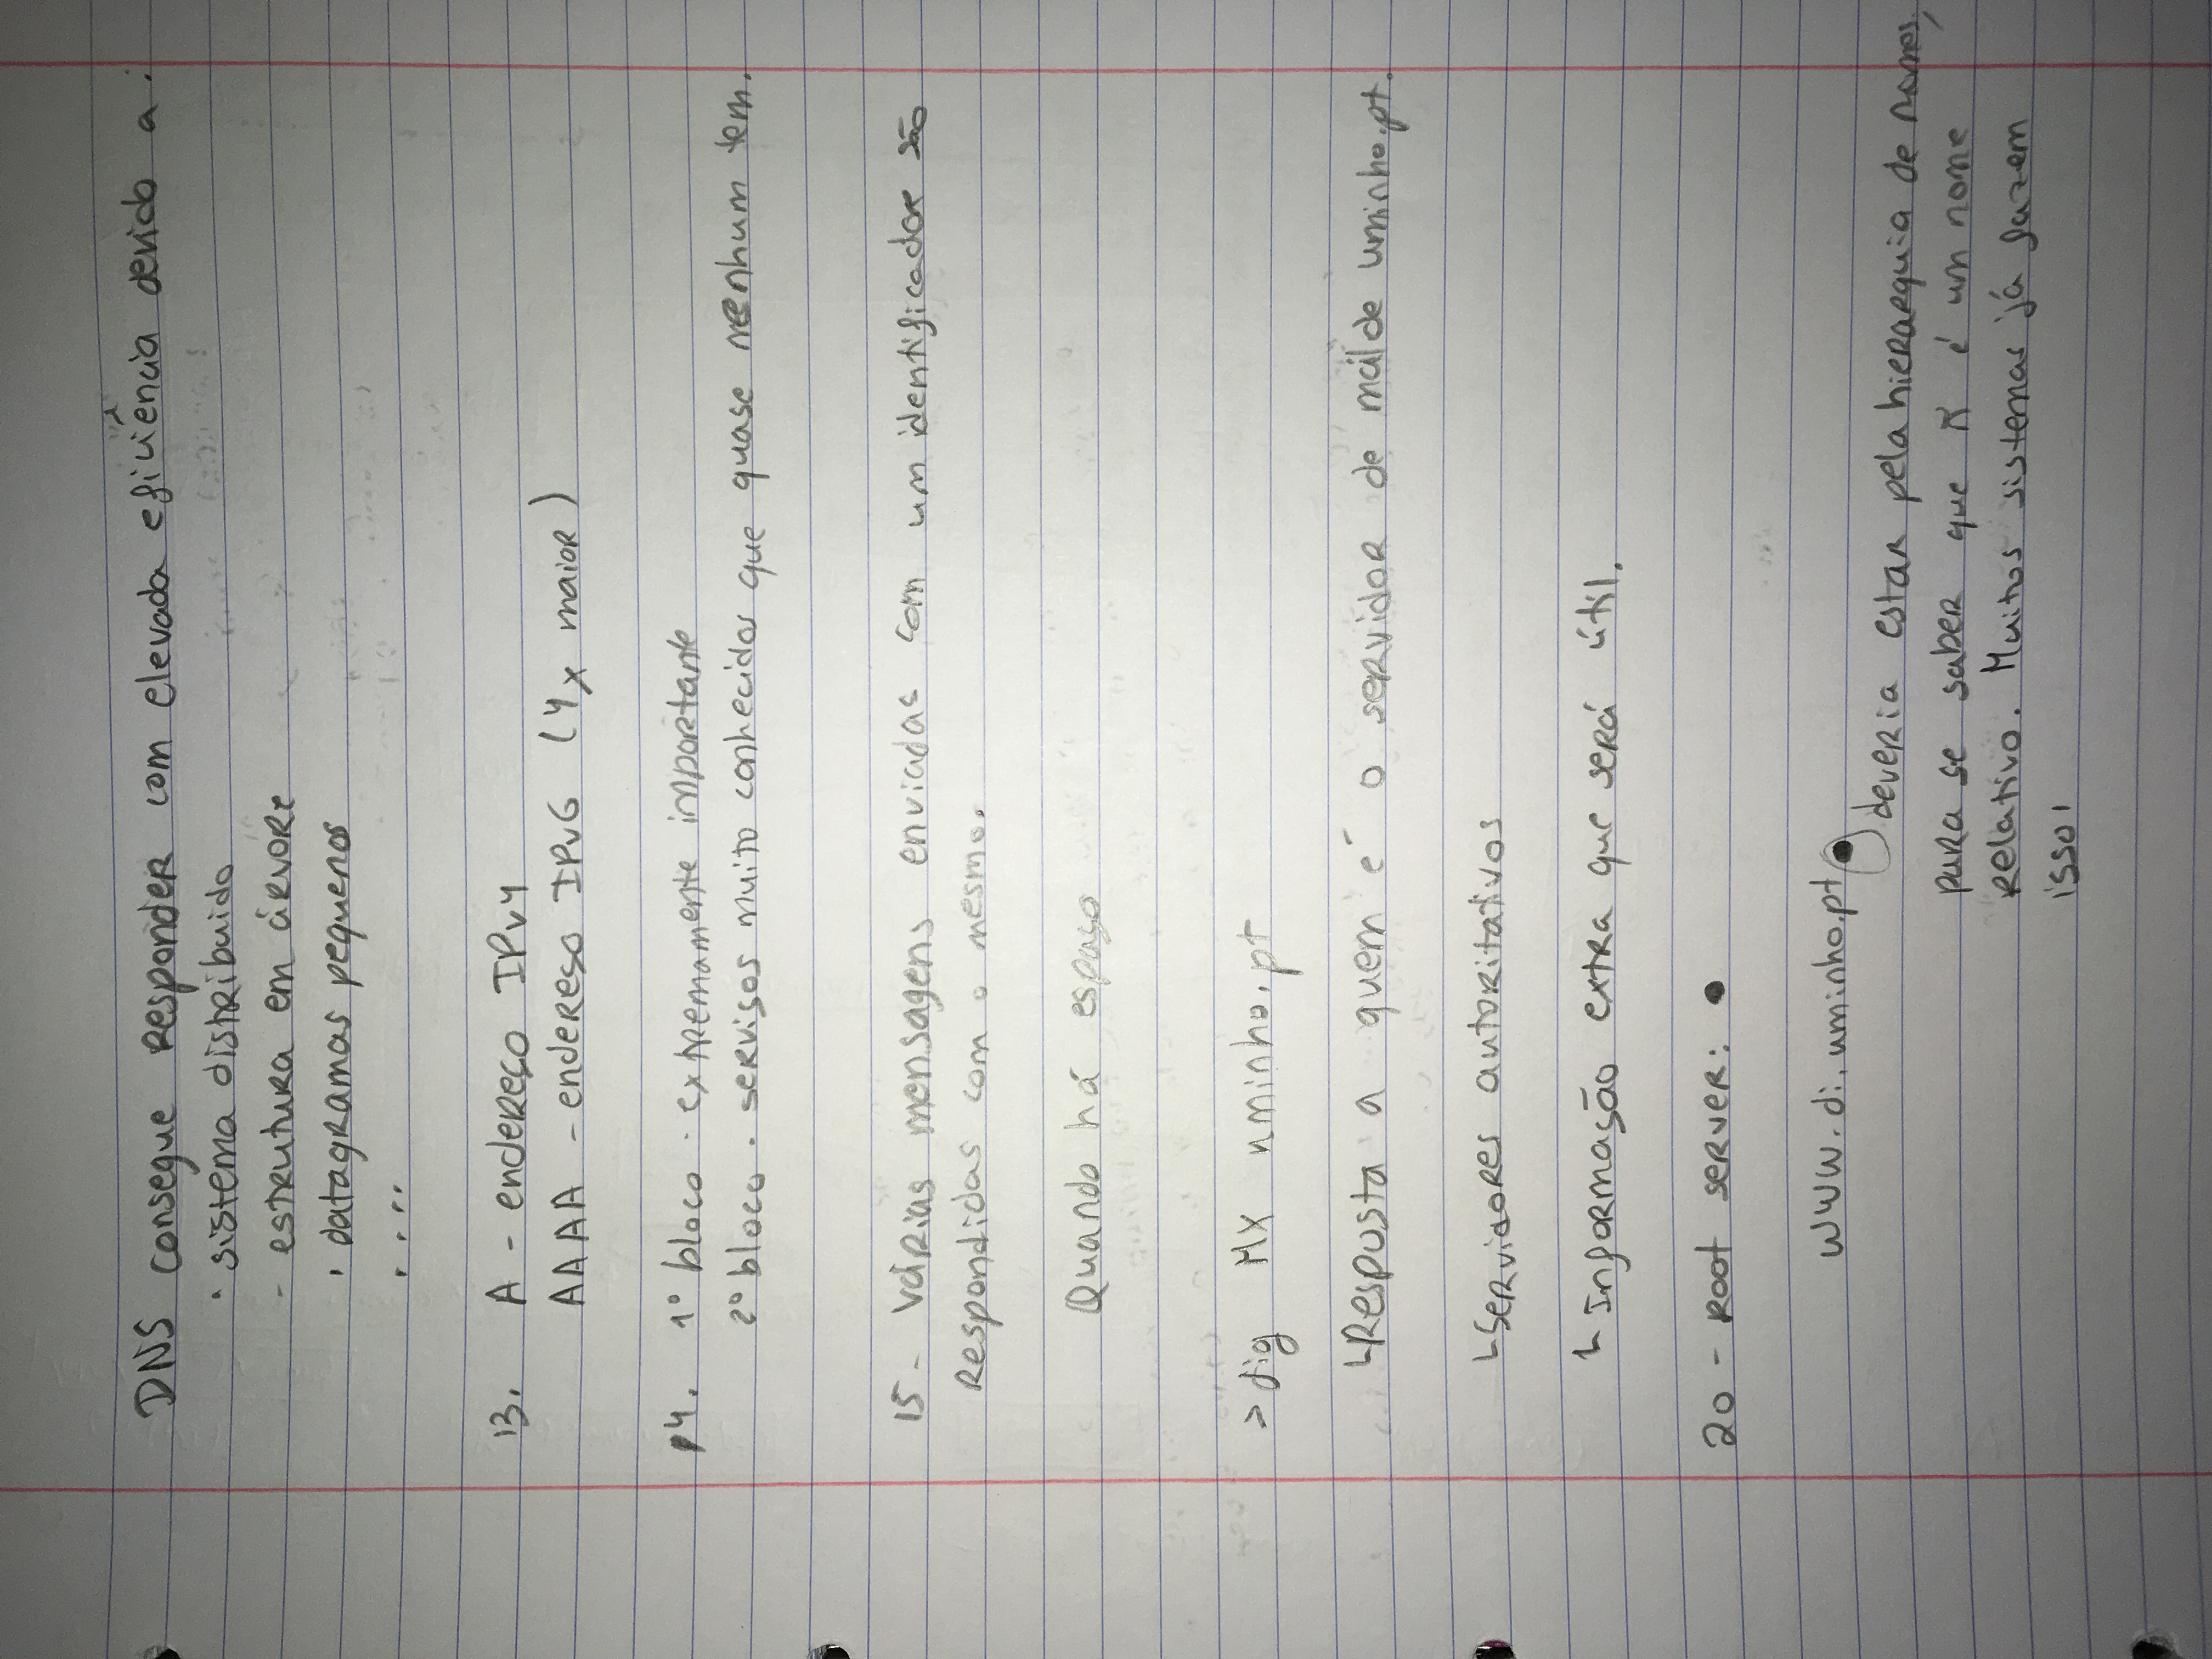 DNS consegue responder com elevada eficiência devido a:
· sistema distribuido
- estrutura em árvore
· datagramas pequenos
. . . .
13. A - endereço IPv4
AAAA - endereço IPv6 (4x maior)
14. 1º bloco · extremamente importante
2º bloco · serviços muito conhecidos que quase nenhum tem.
15 - Várias mensagens enviadas com um identificador são
respondidas com o mesmo.
Quando há espaço
> dig MX uminho.pt
↳ Resposta a quem é o servidor de mail de uminho.pt.
↳ Servidores autoritativos
↳ Informação extra que será útil.
20 - root server: •
www.di.uminho.pt.
deveria estar pela hierarquia de nomes,
para se saber que é um nome
relativo. Muitos sistemas já fazem
isso!